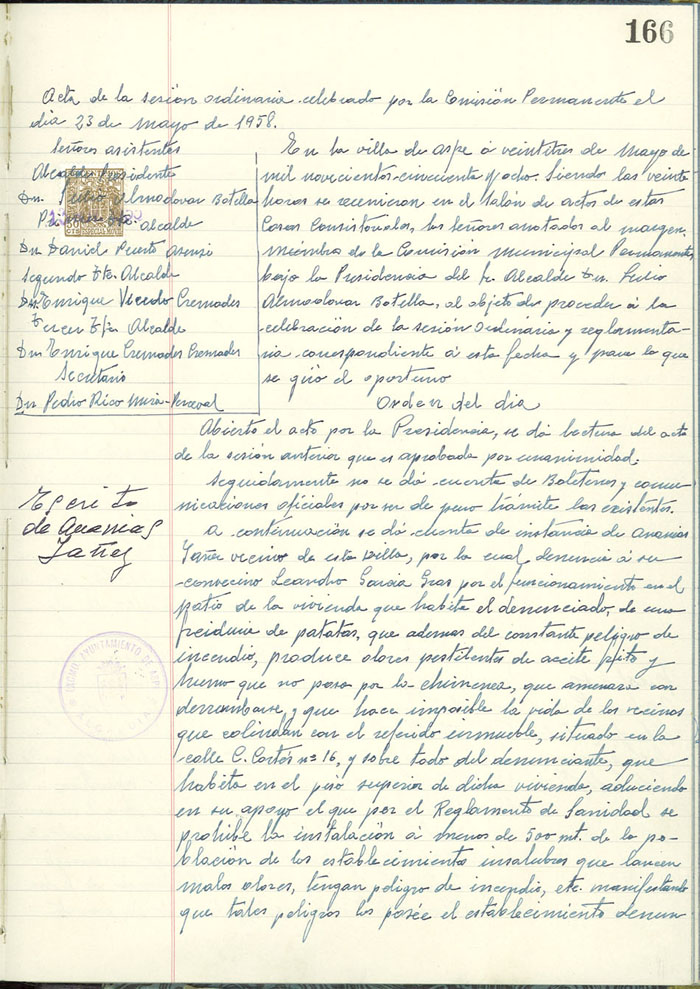 166
Acta de la sesión ordinaria celebrado por la Comisión Permanente el
dia 23 de mayo de 1958.
Señores asistentes
Alcalde Presidente
Dn. Almodovar Botella
Alcalde
Dn Daniel Puerto Asensi
Segundo tte. Alcalde
Dn. Enrique Vicedo Cremades
Tercer Alcalde
Dn Enrique Cremades Cremades
Secretario
Dn Pedro Rico Mira-Perceval
En la villa de aspe á veintitres de mayo de
mil novecientos cincuenta y ocho. Siendo las veinte
horas se reunieron en el Salón de actos de estas
Casas Consistoriales, los señores anotados al margen,
miembros de la Comisión Municipal Permanente,
bajo la Presidencia del Sr Alcalde Dn.
Almodovar Botella, al objeto de proceder á la
celebración de la sesión ordinaria y reglamenta-
ria correspondiente á esta fecha y para la que
se giró el oportuno
Orden del dia
Abierto el acto por la Presidencia, se dá lectura del acta
de la sesión anterior que es aprobada por unanimidad.
Seguidamente no se dá cuenta de Boletines y comu-
nicaciones oficiales por ser de puro trámite las existentes.
Escrito
de Ananias
Yañez
A continuación se dá cuenta de instancia de Ananias
Yañez vecino de esta Villa, por la cual denuncia á su
convecino Leandro Garcia Gras por el funcionamiento en el
patio de la vivienda que habita el denunciado, de una
freiduria de patatas, que ademas del constante peligro de
incendio, produce olores pestilentes de aceite frito y
humo que no pasa por la chimenea, que amenaza con
derrumbarse, y que hace imposible la vida de los vecinos
que colindan con el referido inmueble, situado en la
calle C. Cortés nº 16, y sobre todo del denunciante, que
habita en el piso superior de dicha vivienda, aduciendo
en su apoyo el que por el Reglamento de Sanidad se
prohibe la instalación á menos de 500 mt. de la po-
blación de los establecimientos insalubres que lancen
malos olores, tengan peligro de incendio, etc. manifestando
que tales peligros los posée el establecimiento denun